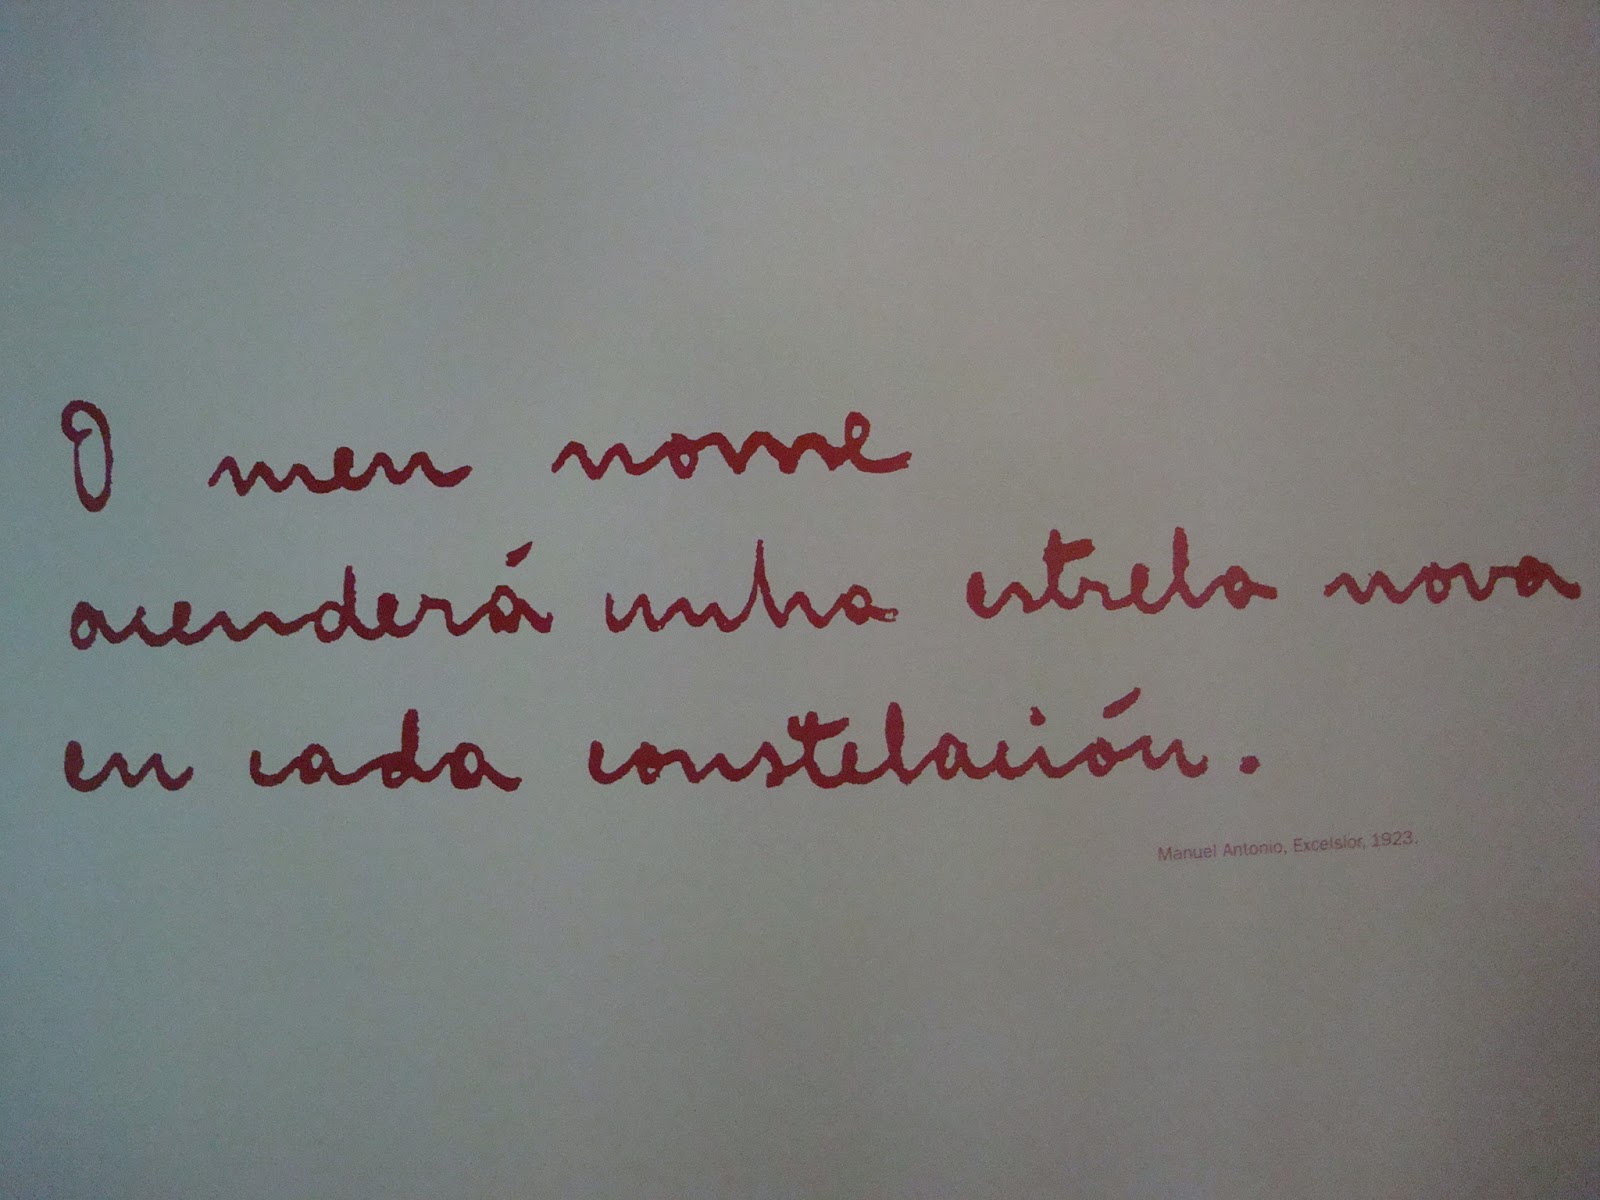 O meu nome
acenderá unha estrela nova
en cada constelación.
Manuel Antonio, Excelsior, 1923.